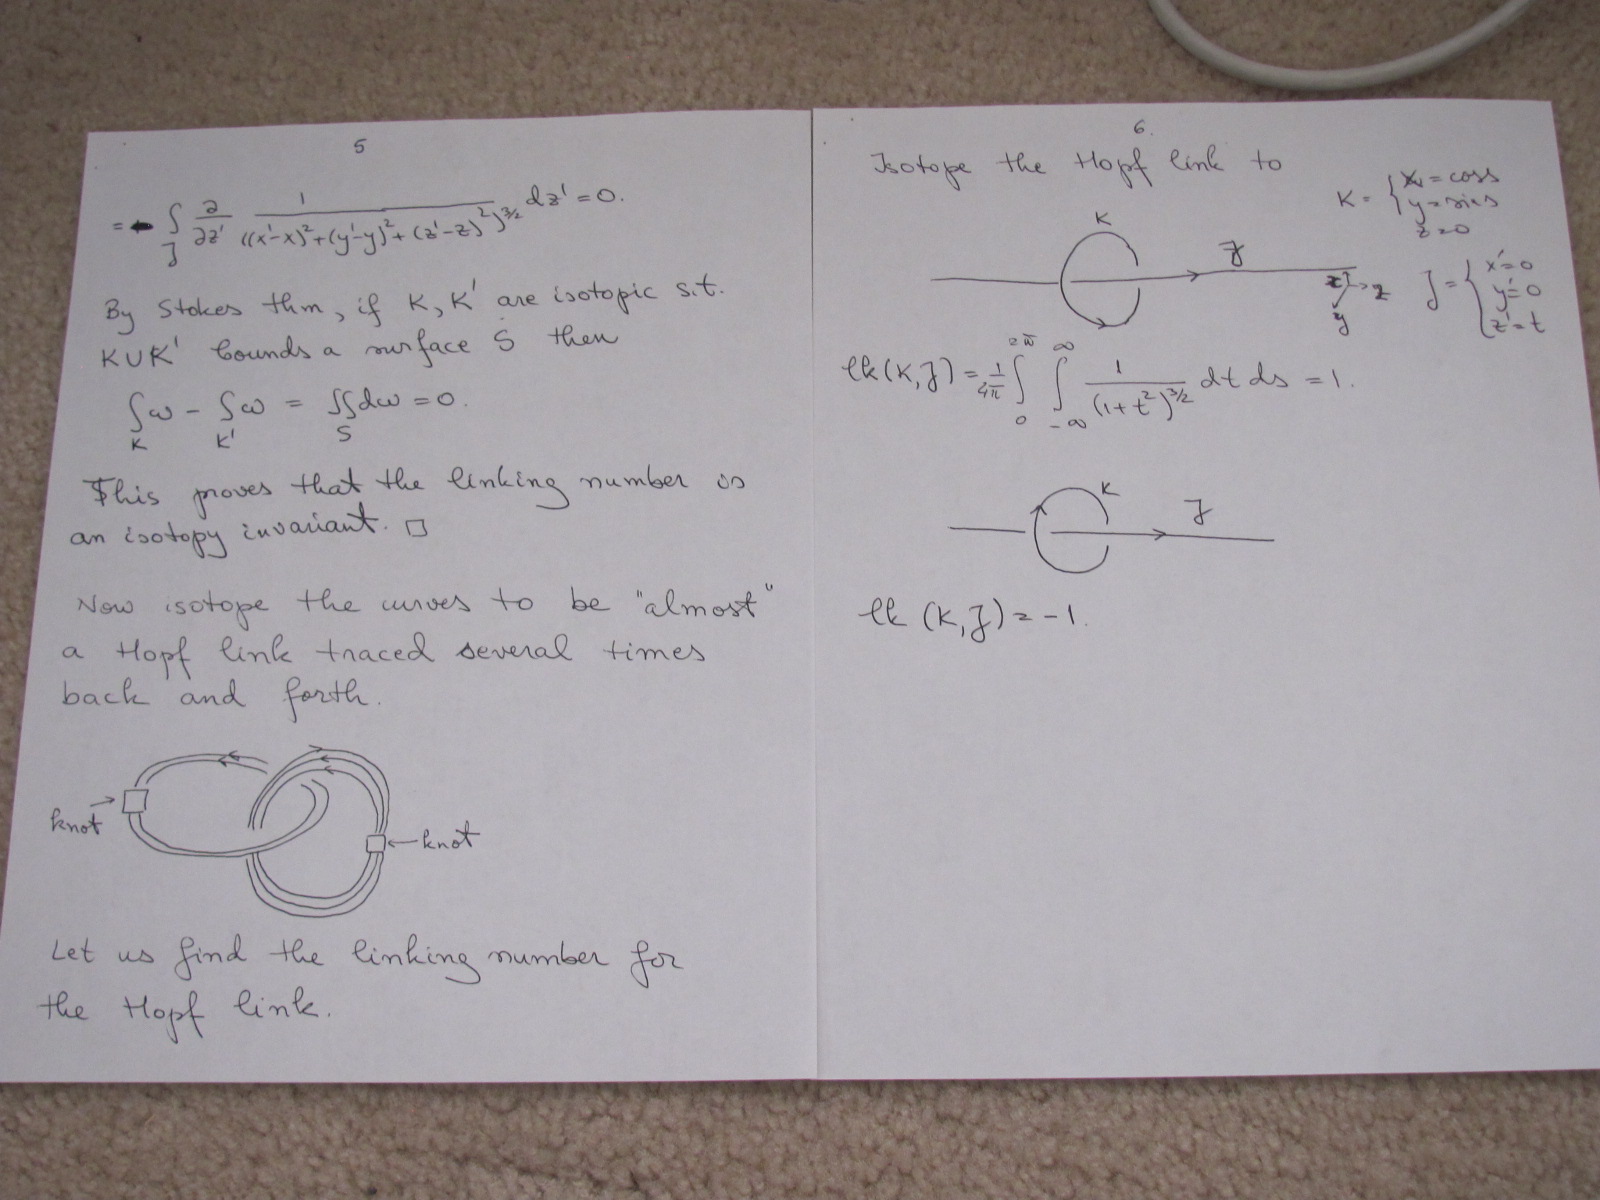 5
= - ∫_J ∂/∂z' 1/((x'-x)²+(y'-y)²+(z'-z)²)^{3/2} dz' = 0.
By Stokes thm, if K, K' are isotopic s.t.
K∪K' bounds a surface S then
∫_K ω - ∫_{K'} ω = ∬_S dω = 0.
This proves that the linking number is
an isotopy invariant. □
Now isotope the curves to be "almost"
a Hopf link traced several times
back and forth.
knot
knot
Let us find the linking number for
the Hopf link.
6.
Isotope the Hopf link to
K = { x = cos s
y = sin s
z = 0
K
J
x
z
y
J = { x' = 0
y' = 0
z' = t
lk(K,J) = 1/4π ∫_0^{2π} ∫_{-∞}^{∞} 1/(1+t²)^{3/2} dt ds = 1.
K
J
lk (K,J) = -1.